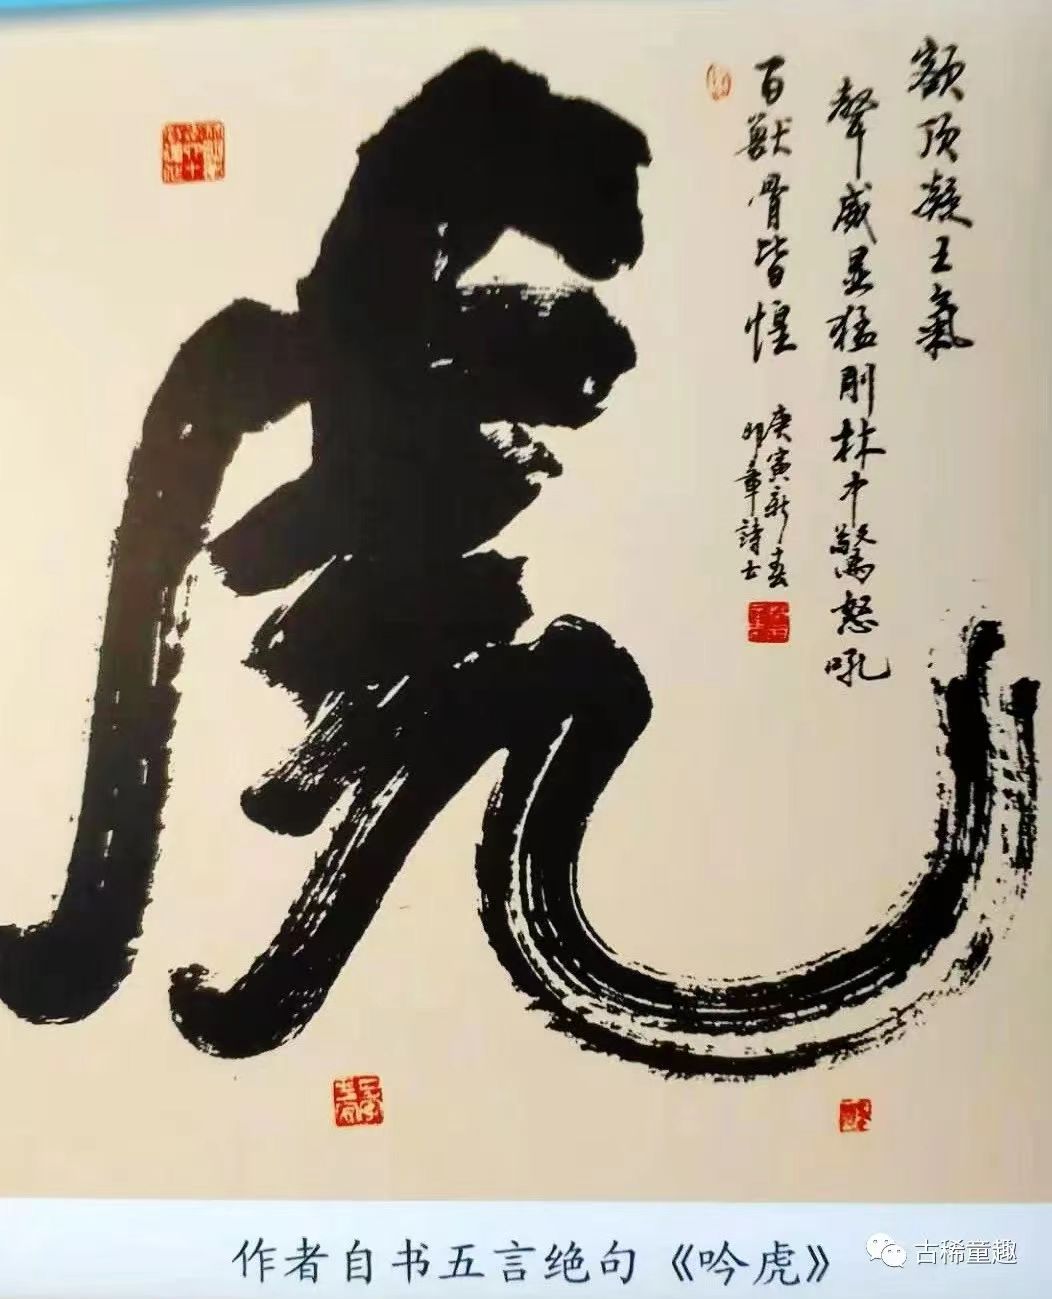 額頂凝王氣
聲威显猛剛林中驚怒吼
百獸骨皆惶
庚寅新春
章詩
虎
作者自书五言绝句《吟虎》
古稀童趣